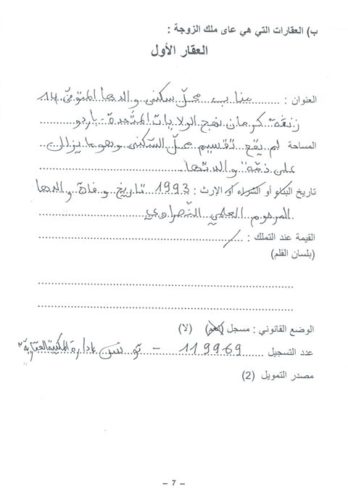 ب) العقارات التي هي على ملك الزوجة :
العقار الأول
العنوان : مناب محلّ سكنى والدها المتوفى 14
زنقة كرمان نهج الولايات المتحدة باردو
المساحة لم يقع تقسيم محلّ السكنى وهو ما يزال
على ذمّة والدتها
تاريخ البناء أو الشراء أو الإرث : 1993 تاريخ وفاة والدها
المرحوم العلمي
القيمة عند التملك : /
(بلسان القلم)
الوضع القانوني : مسجل (نعم) (لا)
عدد التسجيل 119969 - تونس إدارة الملكية العقارية
مصدر التمويل (2)
– 7 –